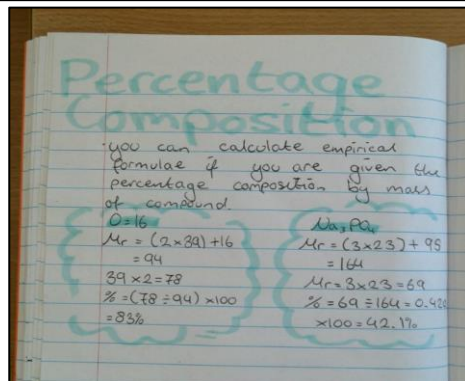 Percentage
Composition
·you can calculate empirical
formulae if you are given the
percentage composition by mass
of compound
O=16
Mr = (2×39)+16
= 94
39 × 2 = 78
% = (78 ÷ 94) ×100
= 83%
Na₃PO₄
Mr = (3×23) + 95
= 164
Mr = 3×23 = 69
% = 69 ÷ 164 = 0.420
×100 = 42.1%